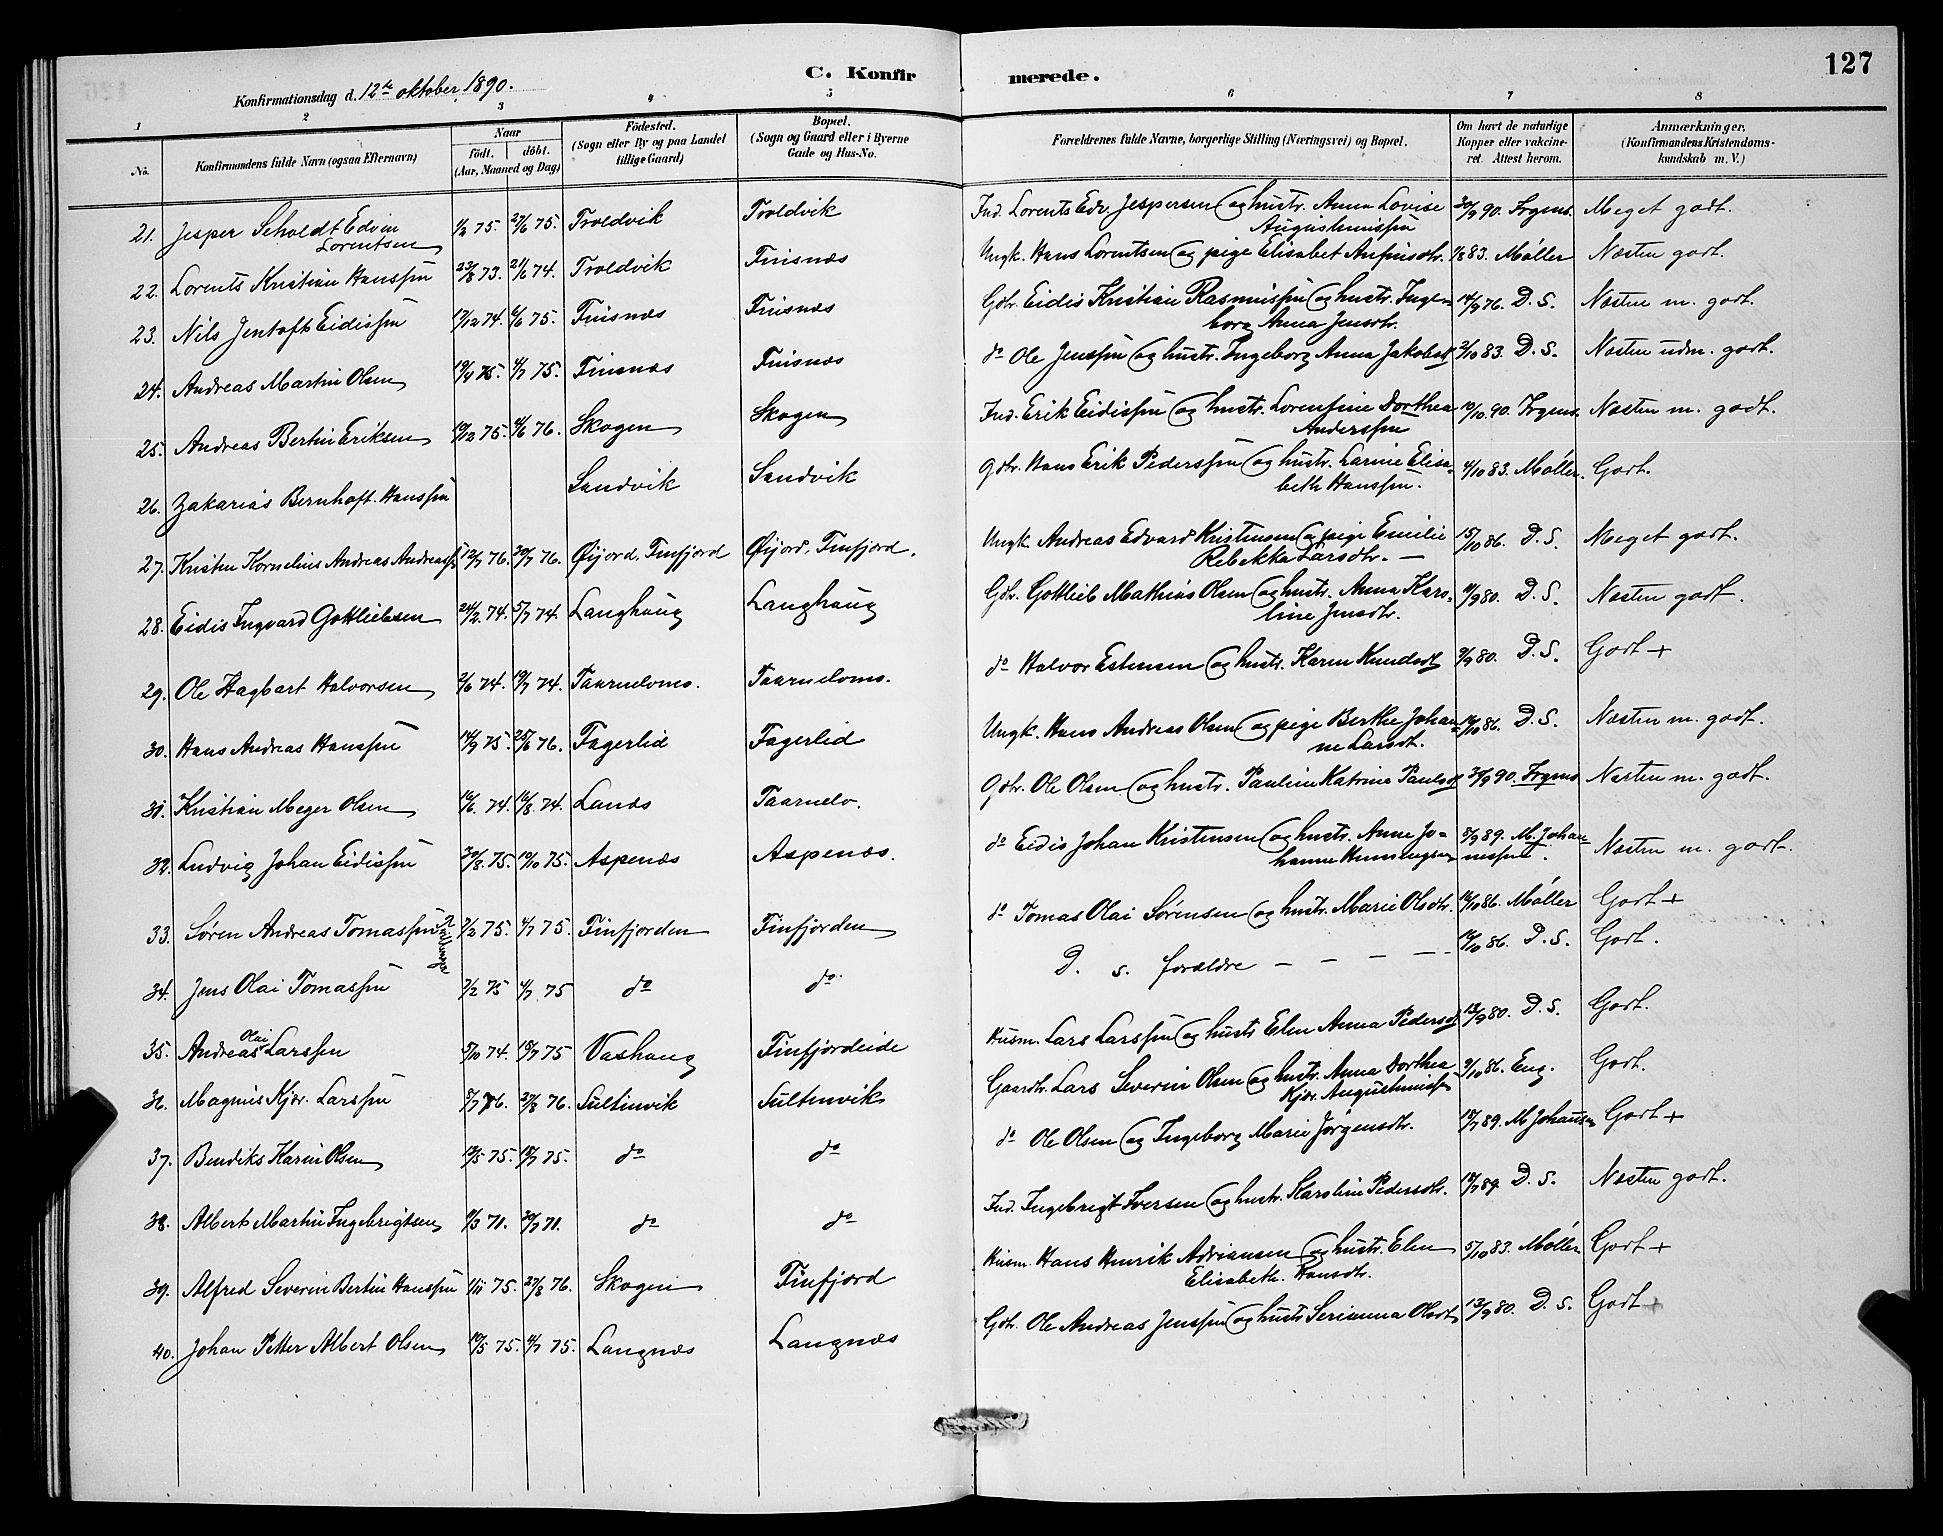 127
C. Konfirmerede.
Konfirmationsdag d. 12te oktober 1890.
1 2 3 4 5 6 7 8
No. Konfirmandens fulde Navn (ogsaa Efternavn) Naar født. døbt. (Aar, Maaned og Dag) Fødested. (Sogn eller By og paa Landet tillige Gaard) Bopæl. (Sogn og Gaard eller i Byerne Gade og Hus-No. Forældrenes fulde Navne, borgerlige Stilling (Næringsvei) og Bopæl. Om havt de naturlige Kopper eller vakcineret. Attest herom. Anmærkninger. (Konfirmandens Kristendomskundskab m. V.)
21. Jesper Scholdt Edvin Lorentsen 75. 75. Troldvik Troldvik Ind. Lorents Edv. Jespersen og hustr. Anna Lovise Augustinussen 30/9 90. Meget godt.
22. Lorents Kristian Hanssen 23/8 73. 21/6 74. Troldvik Finsnæs Ungk. Hans Lorentsen og pige Elisabet Anfinsdtr. 83. Møller Næsten godt.
23. Nils Jentoft Eidissen 17/12 74. 75. Finsnæs Finsnæs Gdr. Eidis Kristian Rasmussen og hustr. Ingeborg Anna Jensdtr. 14/9 76. D. S. Næsten m. godt.
24. Andreas Martin Olsen 19/4 75. 4/7 75. Finsnæs Finsnæs do Ole Jenssen og hustr. Ingeborg Anna Jakobsd 2/10 83. D. S. Næsten udm. godt.
25. Andreas Bertin Eriksen 19/12 75. 4/6 76. Skogen Skogen Ind. Erik Eidissen og hustr. Lorentine Dorthea Anderssen 10/10. 90. Næsten m. godt.
26. Zakarias Bernhoft Hanssen Sandvik Sandvik Gdr. Hans Erik Pederssen og hustr. Larine Elisabeth Hanssen. 4/10 83. Møller. Godt.
27. Kristen Kornelius Andreas Andreass 12/7 76. 30/7 76. Øijord, Finfjord Øijord, Finfjord. Ungk. Andreas Edvard Kristensen og pige Emilie Rebekka Larsdtr. — 15/10 86. D. S. Meget godt.
28. Eidis Ingvard Gottliebsen 24/2 74. 5/7 74. Langhaug Langhaug Gdr. Gottlieb Mathias Olsen og hustr. Anna Karoline Jensdtr. 80. D. S. Næsten godt.
29. Ole Hagbart Halvorsen 2/6 74. 19/7 74. Taarnelvmo. Taarnelvmo. do Halvor Estensen og hustr. Karen Knudsd 9/9 80. D. S. Godt +
30. Hans Andreas Hanssen 14/9 75. 25/6 76. Fagerlid Fagerlid Ungk. Hans Andreas Olsen og pige Berthe Johanne Larsdt. 16/10 86. D. S. Næsten m. godt.
31. Kristian Meyer Olsen 74. 16/8 74. Lanæs Taarnelv. Gdr. Ole Olsen og hustr. Pauline Katrine Paulsd 90. Næsten m. godt.
32. Ludvig Johan Eidissen 30/8 75. 19/10 75. Aspenæs Aspenæs. do Eidis Johan Kristensen og hustr. Anne Johanne Henningsen 8/9 89. M. Johannessen. Næsten m. godt.
33. Søren Andreas Tomassen Tvillinger 7/2 75. 4/7 75. Finfjorden Finfjorden do Tomas Olai Sørensen og hustr. Marie Olsdtr. 16/10 86. Møller Godt +
34. Jens Olai Tomassen 7/2 75 4/7 75 do do D. S. forældre — — — — 16/10 86. D. S. Godt.
35. Andreas Olai Larssen 5/10 74. 75 Vashaug Finfjordeide Husm. Lars Larssen og hustr Elen Anna Pedersd 13/9 80. D. S. Godt.
36. Magnus Kjær. Larssen 76. 27/8 76. Sultinvik Sultinvik Gaardbr. Lars Severin Olsen og hustr. Anna Dorthea Kjær Augustinusd 9/10 86. Eng. Godt.
37. Bendiks Karin Olsen 75. 75. do do do Ole Olsen og Ingeborg Marie Jørgensdtr. 18/7 89. M Johansen Godt +
38. Albert Martin Ingebrigtsen 71. 30/7 71. do do Ind. Ingebrigt Iversen og hustr. Karoline Pedersdtr. 18/7 89. D. S. Næsten godt.
39. Alfred Severin Bertin Hanssen 1/11 75. 27/8 76. Skogen Finfjord Husm. Hans Henrik Adriansen og hustr. Elen Elisabeth. Hansdtr. 5/10 83. Møller Godt +
40. Johan Petter Albert Olsen 10/5 75. 4/7 75. Langnæs Langnæs Gdr. Ole Andreas Jenssen og hustr Serianna Olsdt 13/9 80. D. S. Godt +